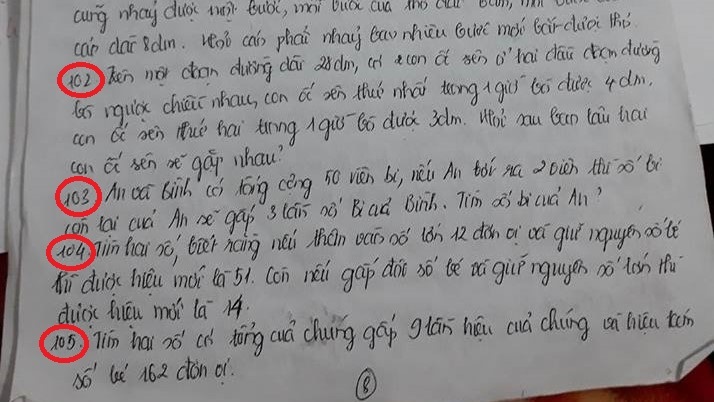 cũng nhảy được một bước, mỗi bước của thỏ
cáo dài 8dm. Hỏi cáo phải nhảy bao nhiêu bước mới bắt được thỏ
102 Trên một đoạn đường dài 28dm, có 2 con ốc sên ở hai đầu đoạn đường
bò ngược chiều nhau, con ốc sên thứ nhất trong 1 giờ bò được 4dm,
con ốc sên thứ hai trong 1 giờ bò được 3dm. Hỏi sau bao lâu hai
con ốc sên sẽ gặp nhau?
103 An và Bình có tổng cộng 50 viên bi, nếu An bớt ra 2 viên thì số bi
còn lại của An sẽ gấp 3 lần số Bi của Bình. Tìm số bi của An?
104. Tìm hai số, biết rằng nếu thêm vào số lớn 12 đơn vị và giữ nguyên số bé
thì được hiệu mới là 51. Còn nếu gấp đôi số bé và giữ nguyên số lớn thì
được hiệu mới là 14.
105. Tìm hai số có tổng của chúng gấp 9 lần hiệu của chúng và hiệu kém
số bé 162 đơn vị.
8